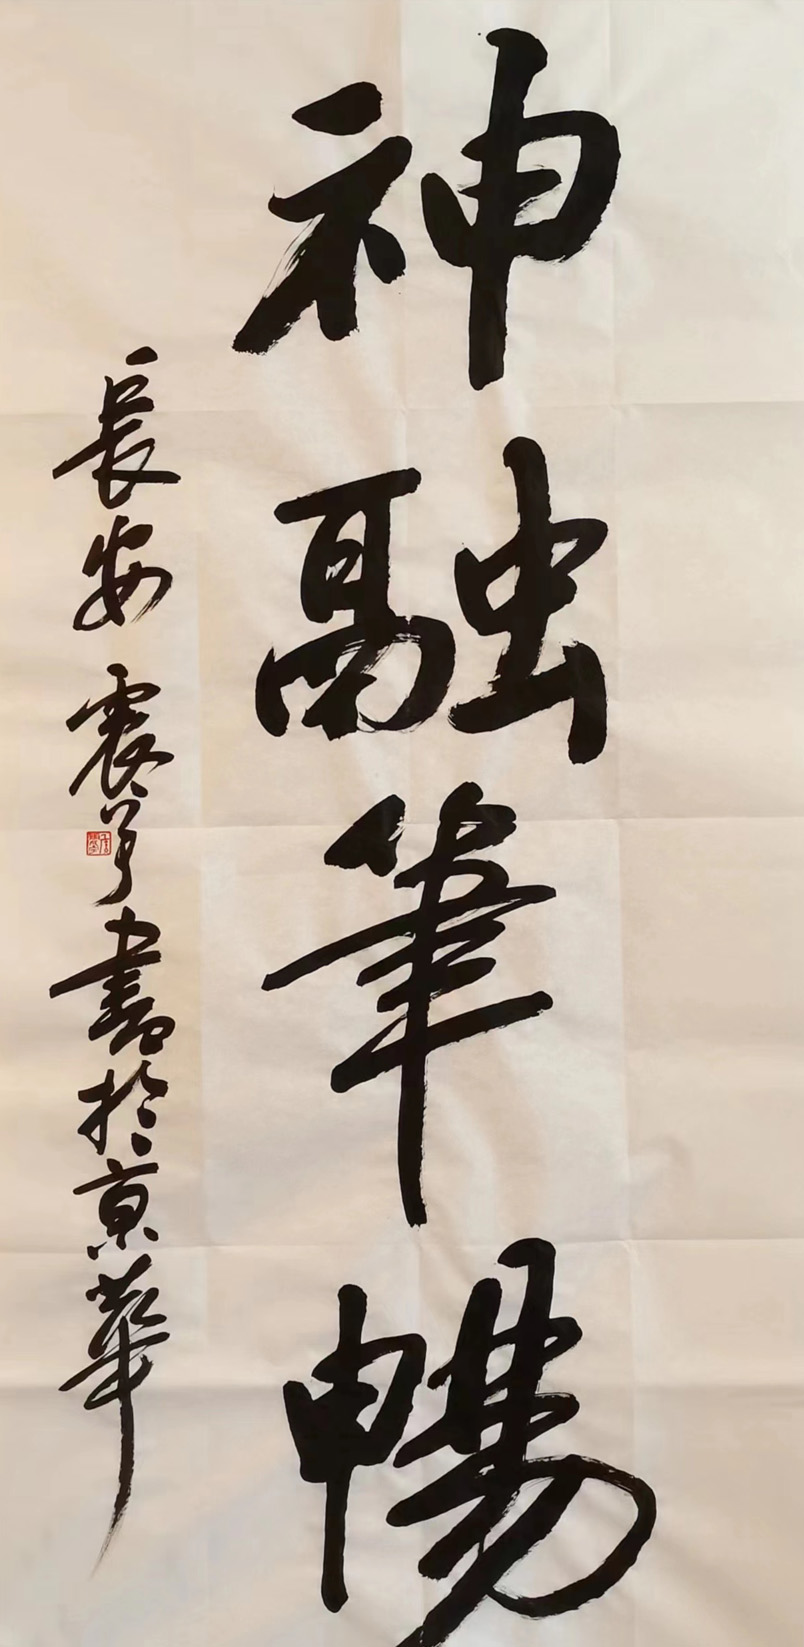 神融筆暢
長安 震宇 書於京華